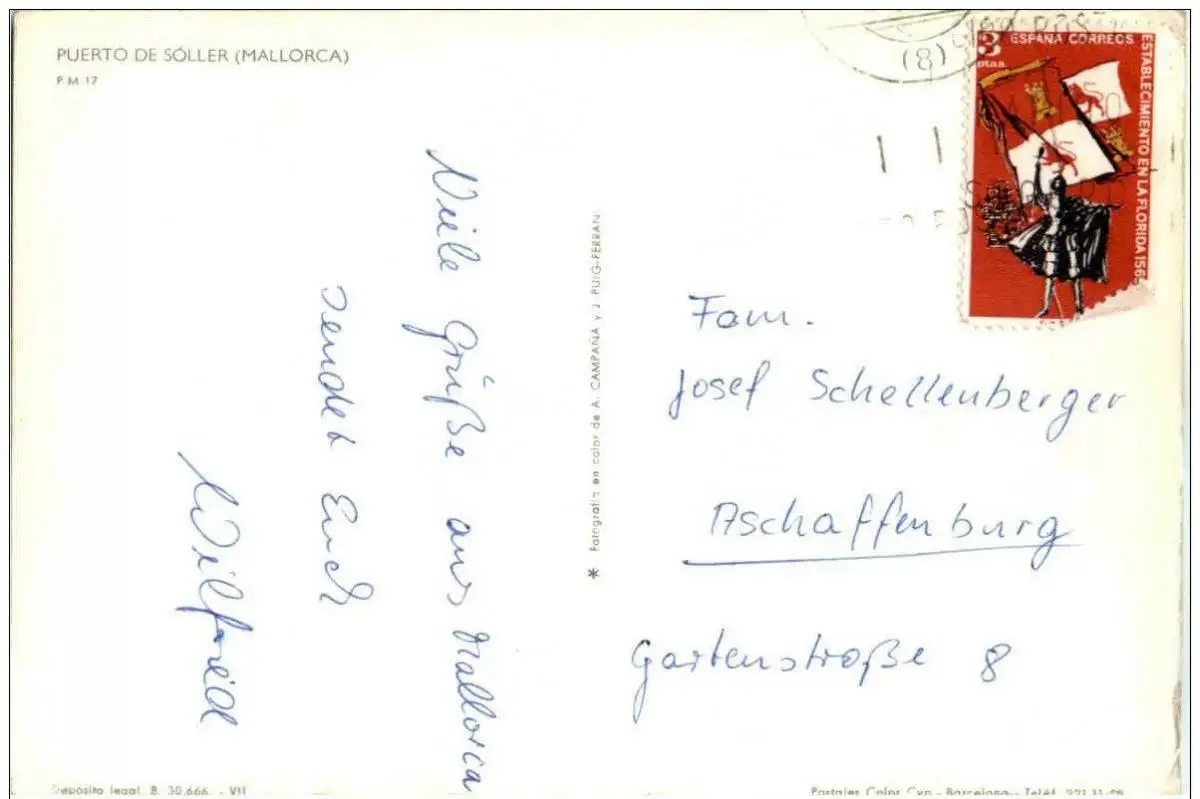 PUERTO DE SÓLLER (MALLORCA)
P M 17
Viele Grüße aus Mallorca
sendet Euch
Wilfried
* Fotografía en color de A. CAMPAÑA y J. PUIG-FERRAN
(8)
3
ptas.
ESPAÑA CORREOS
ESTABLECIMIENTO EN LA FLORIDA 156
Fam.
Josef Schellenberger
Aschaffenburg
Gartenstraße 8
Depósito legal. B. 30.666. - VII
Postales Color Cyp - Barcelona - Teléf. 221